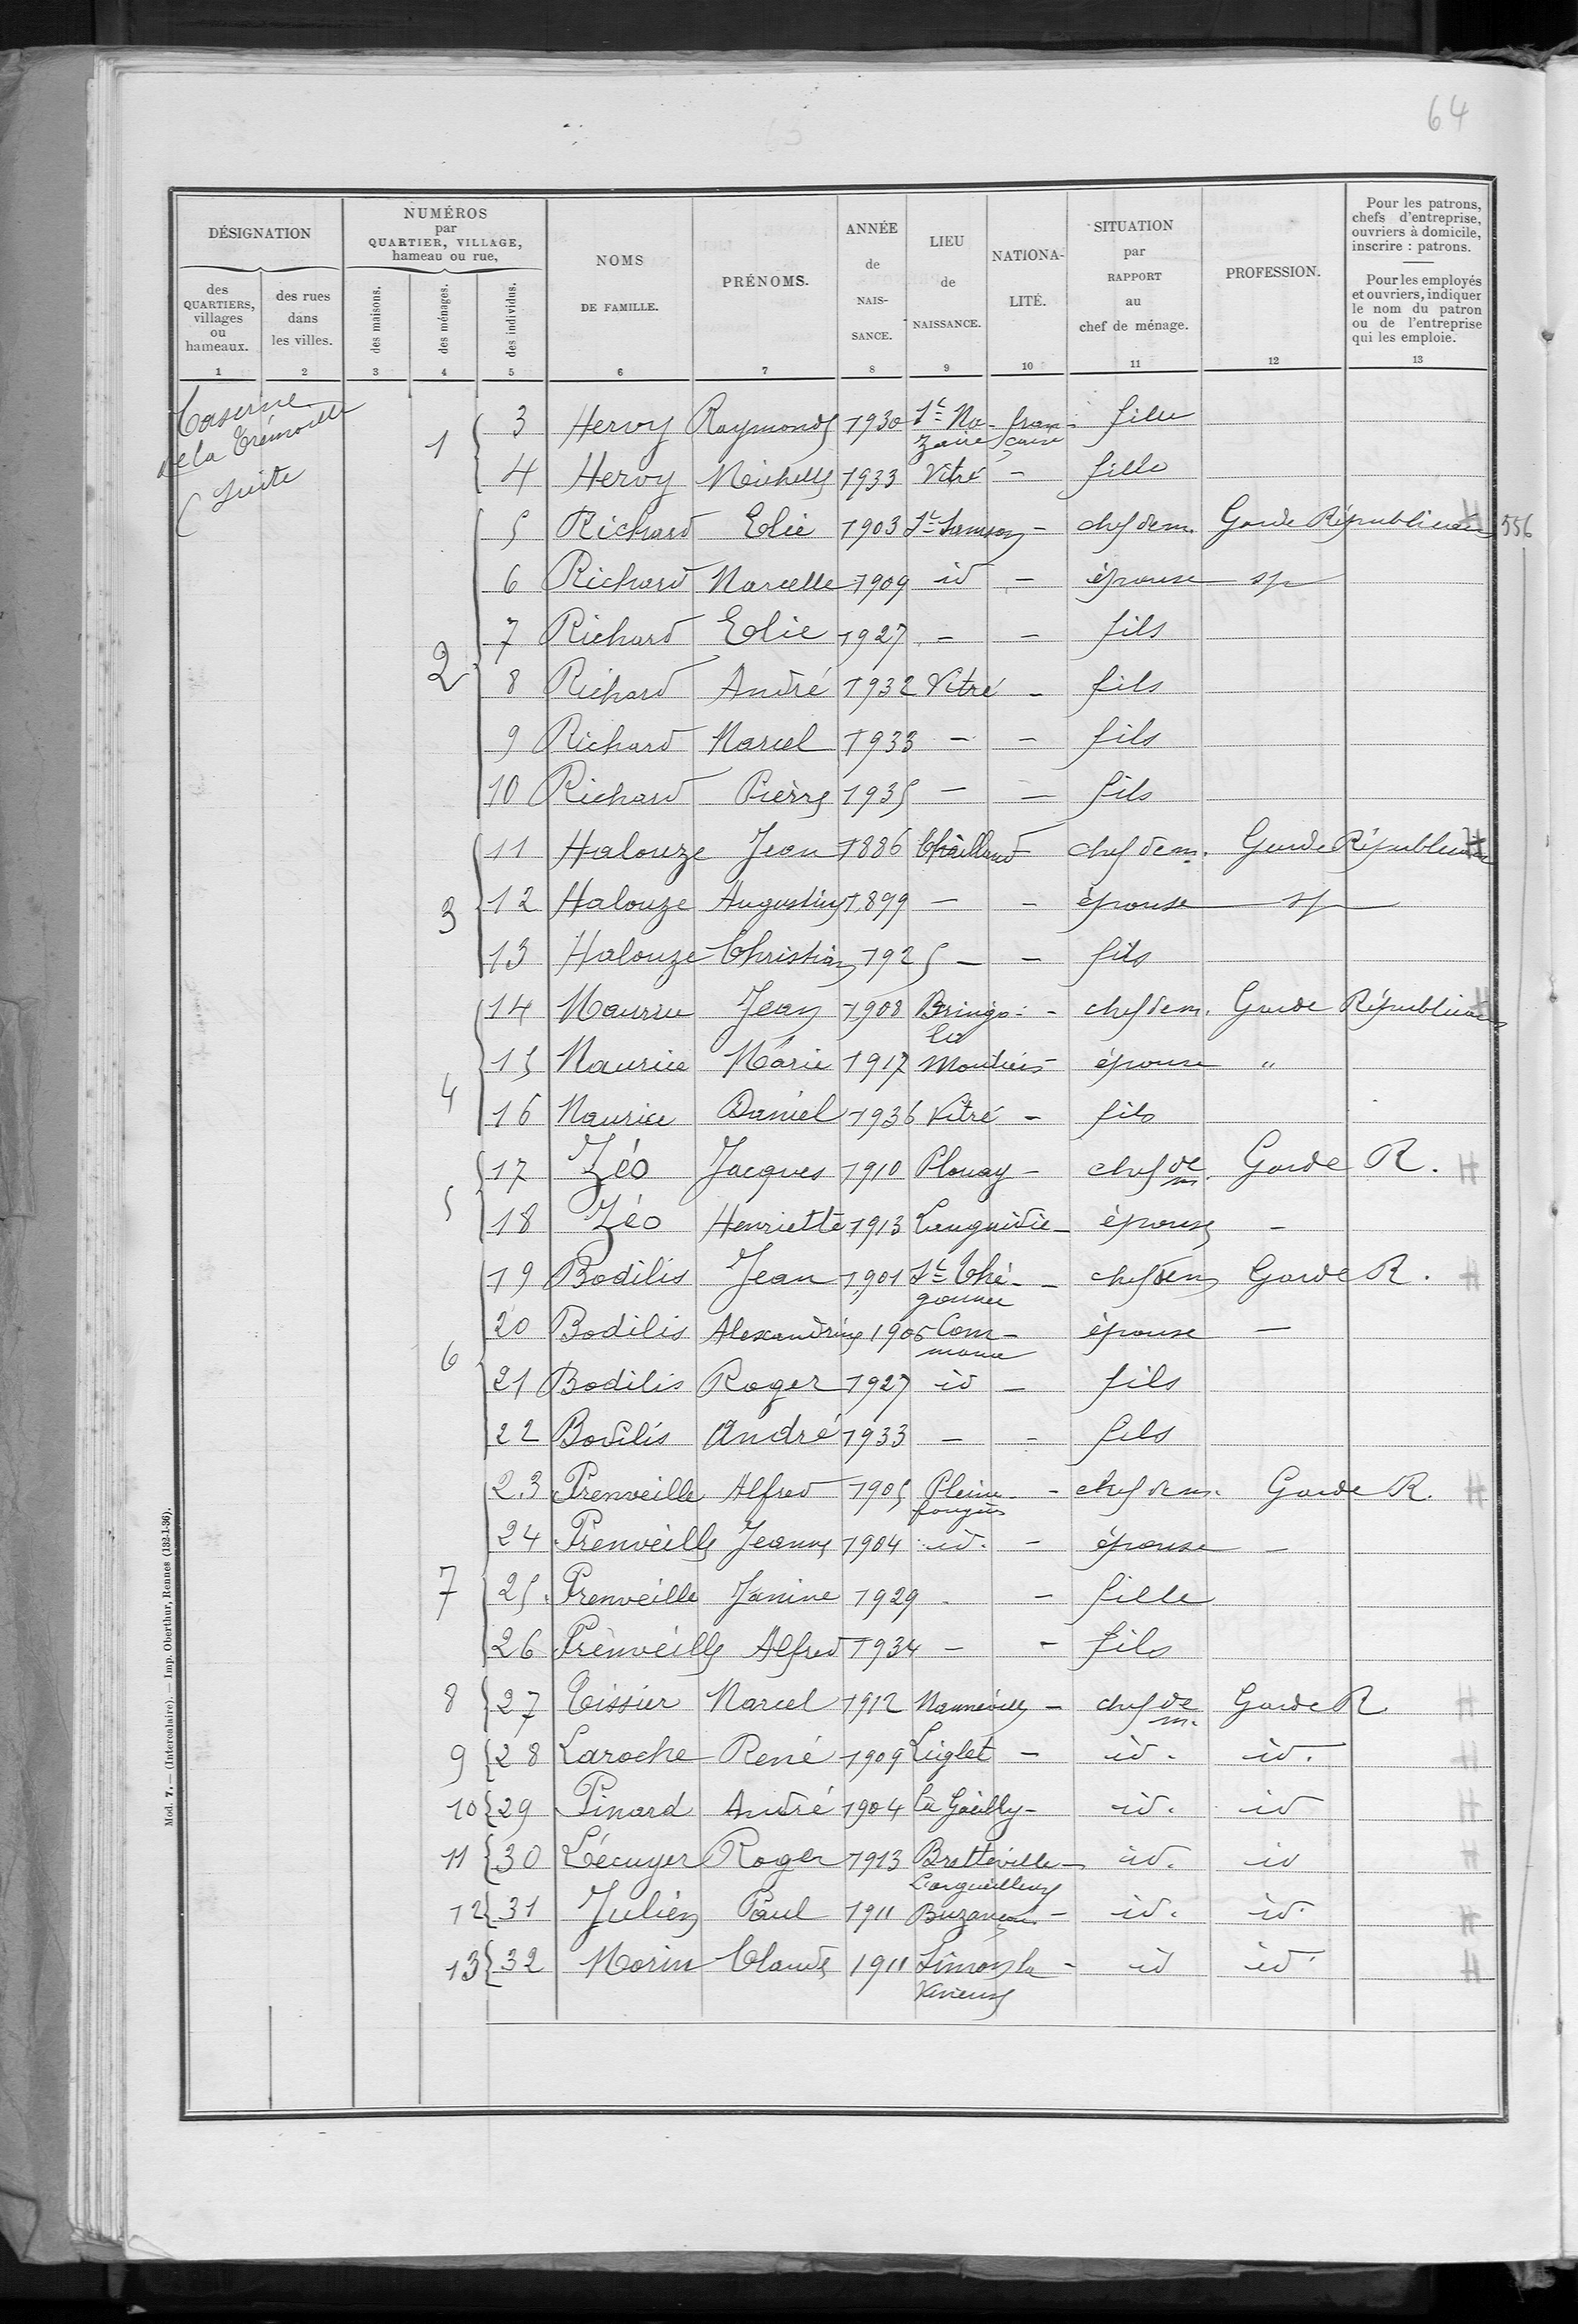 64
DÉSIGNATION
NUMÉROS
par
QUARTIER, VILLAGE,
hameau ou rue,
des
QUARTIERS,
villages
ou
hameaux.
des rues
dans
les villes.
des maisons.
des ménages.
des individus.
NOMS
DE FAMILLE.
PRÉNOMS.
ANNÉE
de
NAIS-
SANCE.
LIEU
de
NAISSANCE.
NATIONA-
LITÉ.
SITUATION
par
RAPPORT
au
chef de ménage.
PROFESSION.
Pour les patrons,
chefs d'entreprise,
ouvriers à domicile,
inscrire : patrons.
Pour les employés
et ouvriers, indiquer
le nom du patron
ou de l'entreprise
qui les emploie.
1 2 3 4 5 6 7 8 9 10 11 12 13
Caserne
de la Trémoille
(suite
1 3 Hervy Raymonde 1930 St Na-zaire française fille
4 Hervy Michelle 1933 Vitré - fille
5 Richard Elie 1903 St Samson - chef de m. Garde Républicain 556
6 Richard Marcelle 1909 id - épouse sp
7 Richard Elie 1927 - - fils
2 8 Richard André 1932 Vitré - fils
9 Richard Marcel 1933 - - fils
10 Richard Pierre 1935 - - fils
11 Halouze Jean 1886 Chailland chef de m. Garde Républicain
3 12 Halouze Augustine 1899 - - épouse sp
13 Halouze Christian 1925 - - fils
14 Maurice Jean 1908 Bringo- - chef de m. Garde Républicain
15 Maurice Marie 1917 Moutiers - épouse "
4 16 Maurice Daniel 1936 Vitré - fils
17 Zéo Jacques 1910 Plouay - chef de m. Garde R.
5 18 Zéo Henriette 1913 Languidic - épouse -
19 Bodilis Jean 1901 St Thé-gonnec - chef de m Garde R.
20 Bodilis Alexandrine 1905 Com-mana - épouse -
6 21 Bodilis Roger 1927 id - fils
22 Bodilis André 1933 - - fils
23 Prenveille Alfred 1905 Pleine-fougères - chef de m. Garde R.
24 Prenveille Jeanne 1904 id. - épouse -
7 25. Prenveille Janine 1929 - fille
26 Prenveille Alfred 1934 - - fils
8 27 Tissier Marcel 1912 - chef de m. Garde R
9 28 Laroche René 1909 Liglet - id. id.
10 29 Pinard André 1904 La Gacilly - id. id
11 30 Lécuyer Roger 1913 Bretteville - id. id
L'orgueilleuse
12 31 Julien Paul 1911 Buzançais - id. id.
13 32 Morin Claude 1911 Simon la - id id.
Vineuse
Mod. 7. — (Intercalaire). — Imp. Oberthur, Rennes (132-1-36).